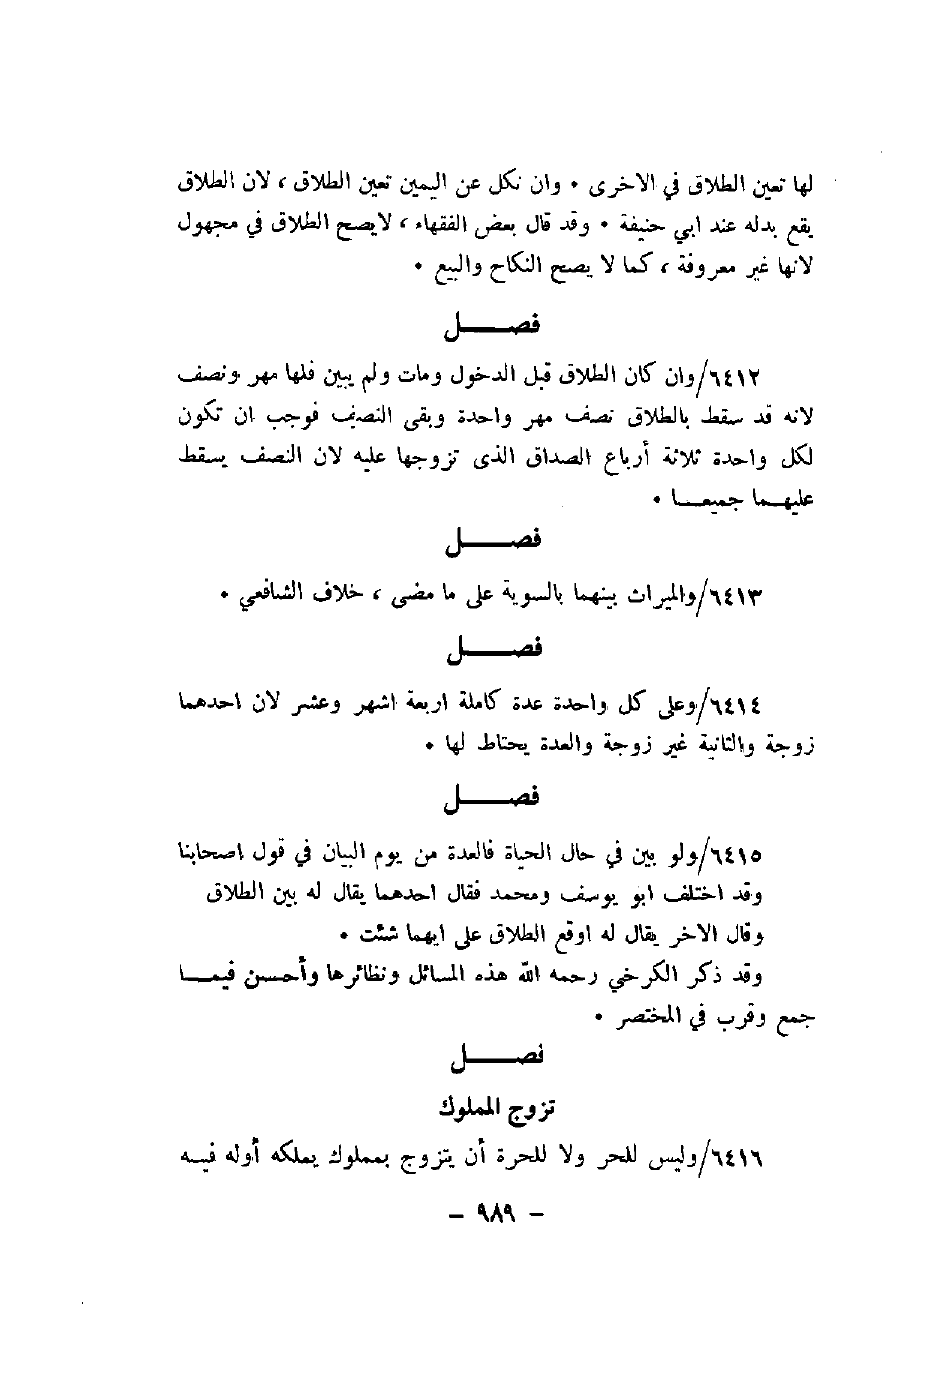 لها تعين الطلاق في الاخرى • وان نكل عن اليمين تعين الطلاق ، لان الطلاق
يقع بدله عند ابي حنيفة • وقد قال بعض الفقهاء ، لايصح الطلاق في مجهول
لانها غير معروفة ، كما لا يصح النكاح والبيع •
فصـــــل
٦٤١٢/وان كان الطلاق قبل الدخول ومات ولم يبين فلها مهر ونصف
لانه قد سقط بالطلاق نصف مهر واحدة وبقى النصف فوجب ان تكون
لكل واحدة ثلاثة أرباع الصداق الذى تزوجها عليه لان النصف يسقط
عليهـما جميعــا •
فصـــــل
٦٤١٣/والميراث بينهما بالسوية على ما مضى ، خلاف الشافعي •
فصـــــل
٦٤١٤/وعلى كل واحدة عدة كاملة اربعة اشهر وعشر لان احدهما
زوجة والثانية غير زوجة والعدة يحتاط لها •
فصـــــل
٦٤١٥/ولو بين في حال الحياة فالعدة من يوم البيان في قول اصحابنا
وقد اختلف ابو يوسف ومحمد فقال احدهما يقال له بين الطلاق
وقال الاخر يقال له اوقع الطلاق على ايهما شئت •
وقد ذكر الكرخي رحمه الله هذه المسائل ونظائرها وأحسن فيمـــا
جمع وقرب في المختصر •
فصـــــل
تزوج المملوك
٦٤١٦/وليس للحر ولا للحرة أن يتزوج بمملوك يملكه أوله فيــه
– ٩٨٩ –